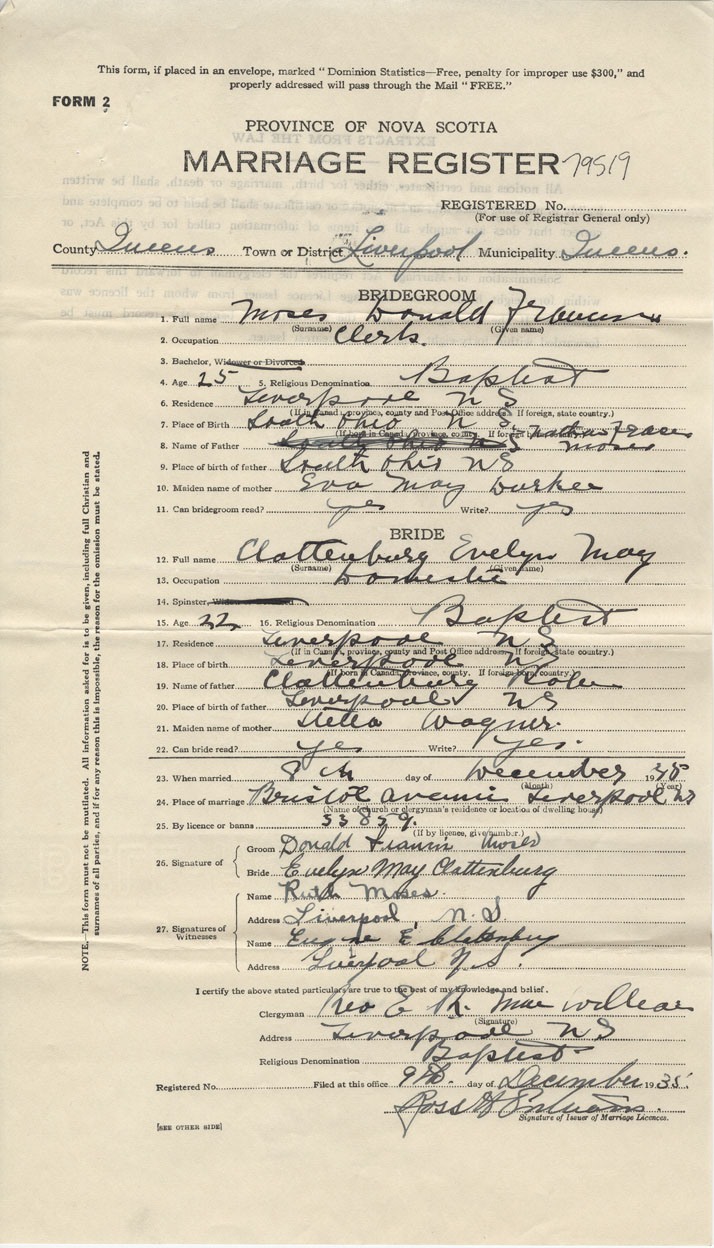 This form, if placed in an envelope, marked "Dominion Statistics—Free, penalty for improper use $300," and
properly addressed will pass through the Mail "FREE."
FORM 2
PROVINCE OF NOVA SCOTIA
MARRIAGE REGISTER 79519
REGISTERED No.
(For use of Registrar General only)
County Queens Town or District Liverpool Municipality Queens.
BRIDEGROOM
1. Full name Moses Donald Francis
(Surname) (Given name)
2. Occupation Clerk.
3. Bachelor, Widower or Divorced
4. Age 25 5. Religious Denomination Baptist
6. Residence Liverpool N S
(If in Canada, province, county and Post Office address. If foreign, state country.)
7. Place of Birth South Ohio N S
(If born in Canada, province, county. If foreign born, country)
8. Name of Father South Ohio NS Nathan Moses
9. Place of birth of father South Ohio NS
10. Maiden name of mother Eva May Durkee
11. Can bridegroom read? yes Write? yes
BRIDE
12. Full name Clattenburg Evelyn May
(Surname) (Given name)
13. Occupation Domestic
14. Spinster,
15. Age 22 16. Religious Denomination Baptist
17. Residence Liverpool N S
(If in Canada, province, county and Post Office address. If foreign, state country.)
18. Place of birth Liverpool NS
(If born in Canada, province, county. If foreign born, country)
19. Name of father Clattenburg
20. Place of birth of father Liverpool NS
21. Maiden name of mother Stella Wagner.
22. Can bride read? yes Write? yes.
23. When married 8th day of December 1935
(Month) (Year)
24. Place of marriage Bristol Avenue Liverpool NS
(Name of church or clergyman's residence or location of dwelling house)
25. By licence or banns 53859.
(If by licence, give number.)
26. Signature of
Groom Donald Francis Moses
Bride Evelyn May Clattenburg
27. Signatures of Witnesses
Name Ruth Moses.
Address Liverpool, N.S.
Name Eugene E Clattenburg
Address Liverpool N.S.
I certify the above stated particulars are true to the best of my knowledge and belief.
Clergyman
(Signature)
Address Liverpool NS
Religious Denomination Baptist
Registered No. Filed at this office 9th. day of December 1935.
Ross
Signature of Issuer of Marriage Licences.
[SEE OTHER SIDE]
NOTE.—This form must not be mutilated. All information asked for is to be given, including full Christian and
surnames of all parties, and if for any reason this is impossible, the reason for the omission must be stated.